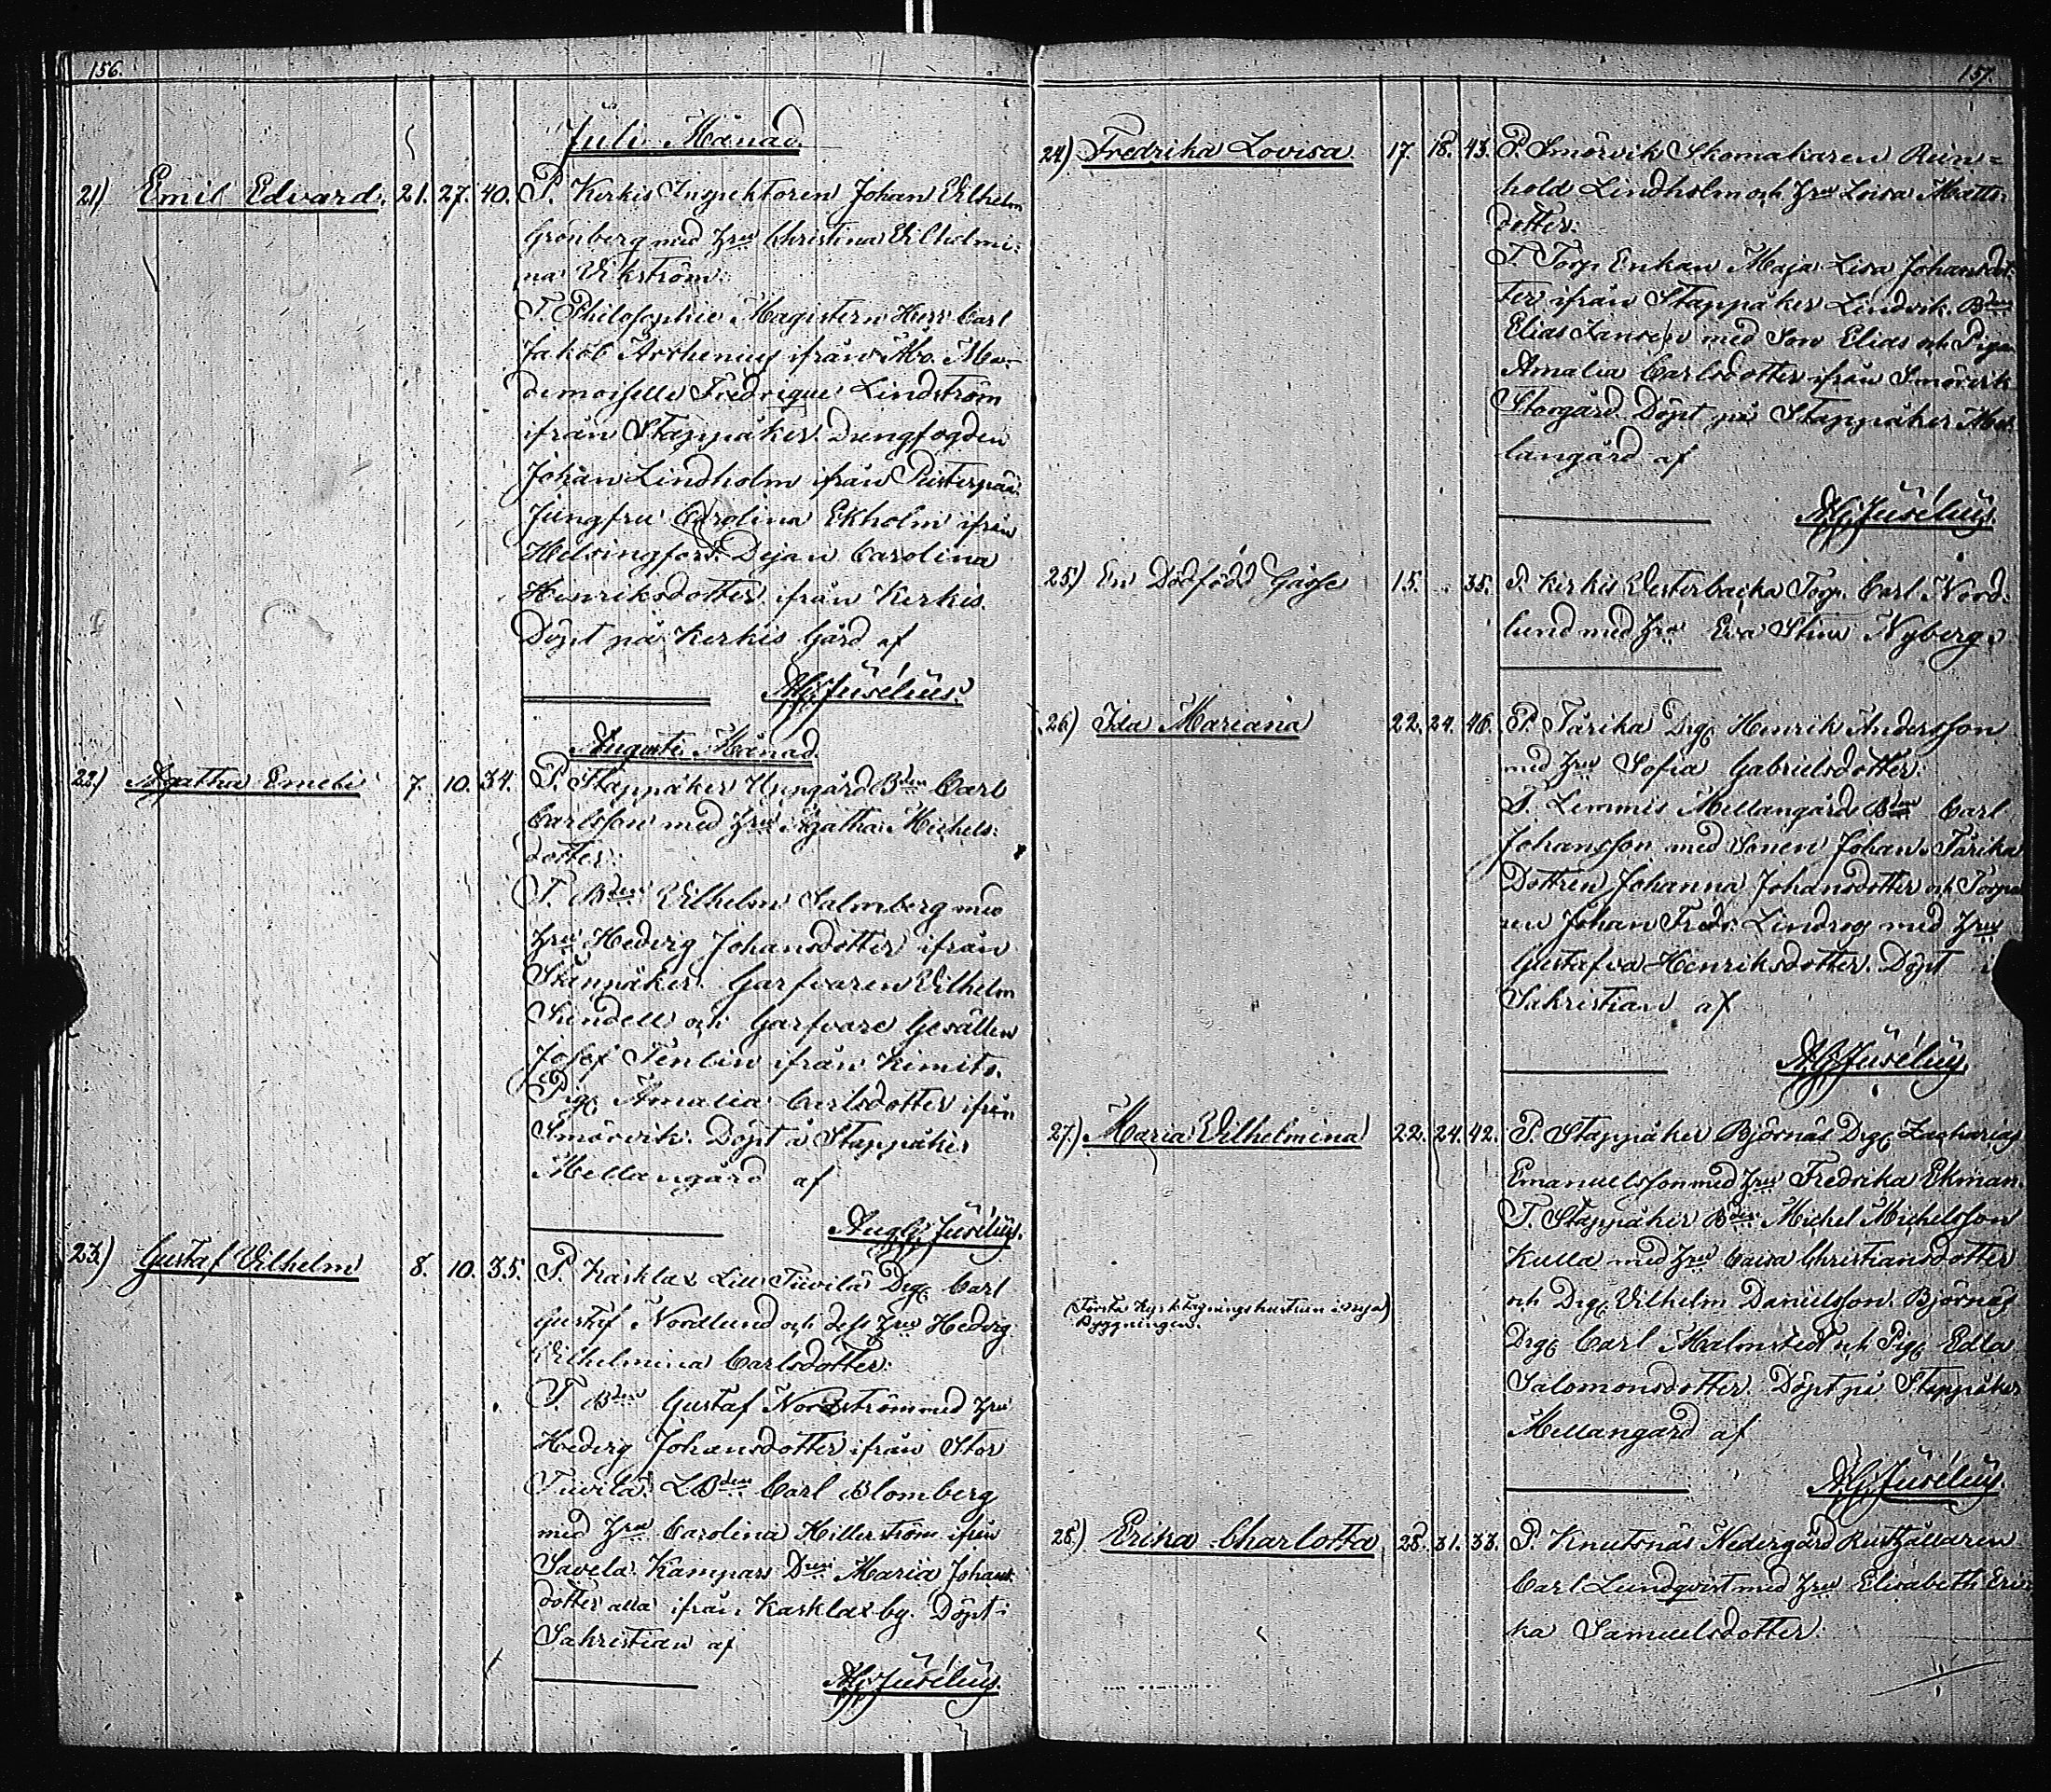 156.
Juli Månad.
21) Emil Edvard. 21. 27. 40. P. Kirkis Inspektoren Johan Vilhelm
Grönberg med Hru Christina Vilhelmi-
na Vikström.
T. Philosophie Magistern Herr Carl
Jakob Arrhenius ifrån Åbo. Ma-
demoiselle Fredrique Lindström
ifrån Stappåker. Drengfogden
Johan Lindholm ifrån
Jungfru Carolina Ekholm ifrån
Helsingfors. Dejan Carolina
Henriksdotter ifrån Kirkis.
Döpt på Kirkis Gård af
A.G. Jusélius.
Augusti Månad.
22.) Agatha Emelie 7. 10. 34. P. Stappåker Uppgård Bden Carl
Carlsson med Hru Agatha Michels-
dotter.
T. Bden Vilhelm Salmberg med
Hru Hedvig Johansdotter ifrån
Stappåker. Garfvaren Vilhelm
Sundell och Garfvare Gesällen
Josef ifrån Kimito.
Pig. Amalia Carlsdotter ifrån
Smörvik. Döpt å Stappåker
Mellangård af
Aug. G. Jusélius.
23.) Gustaf Vilhelm 8. 10. 35. P. Karklax Lill Tuvila Drg. Carl
Gustaf Nordlund och dess Hru Hedvig
Vilhelmina Carlsdotter.
T. Bden Gustaf Nordström med Hru
Hedvig Johansdotter ifrån Stor
Tuvila. LBden Carl Blomberg
med Hru Carolina Hillerström ifrån
Savela. Kampars Dren Maria Johans-
dotter alla ifrån Karklax by. Döpt i
Sakristian af
A.G. Jusélius.
157.
24) Fredrika Lovisa 17. 18. 43. P. Smörvik Skomakaren Rein-
hold Lindholm och Hru Lovisa Matts-
dotter.
T. Torp. Enkan Maja Lisa Johansdot-
ter ifrån Stappåker Lindvik. Bden
Elias med Son Elias och Pigan
Amalia Carlsdotter ifrån Smörvik
Storgård. Döpt på Stappåker Mel-
langård af
A.G. Jusélius.
25.) En Dödfödd Gåsse 15. . 35. P. Kirkis Vesterbacka Torp. Carl Nord-
lund med Hru Eva Stina Nyberg.
26.) Ida Mariana 22. 24. 46. P. Tärika Drg. Henrik Andersson
med Hru Sofia Gabrielsdotter.
T. Lemmis Mellangårds Bden Carl
Johansson med Sonen Johan. Tärika
Dottren Johanna Johansdotter och Torpa-
ren Johan Fredr. Lindroos med Hru
Gustafva Henriksdotter. Döpt i
Sakristian af
A.G. Jusélius.
27.) Maria Vilhelmina 22. 24. 42. P. Stappåker Björnäs Drg. Zacharias
Emanuelsson med Hru Fredrika Ekman.
T. Stappåker Bden Michel Michelsson
Kulla med Hru Caisa Christiansdotter
(Första Kyrktagningshustrun i nya)
Byggningen.
och Drg. Vilhelm Danielsson. Björnäs
Drg. Carl Malmstedt och Pig. Edla
Salomonsdotter. Döpt på Stappåker
Mellangård af
A.G. Jusélius.
28.) Erika Charlotta 28. 31. 33. P. Knutsnäs Nedergård Rusthållaren
Carl Lundqvist med Hru Elisabeth Eri-
ka Samuelsdotter.